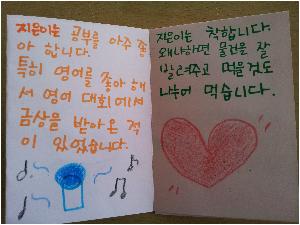 지은이는 공부를 아주 좋
아 합니다.
특히 영어를 좋아 해
서 영어 대회에서
금상을 받아온 적
이 있었습니다.
지은이는 착합니다.
왜냐하면 물건을 잘
빌려주고 먹을것도
나누어 먹습니다.